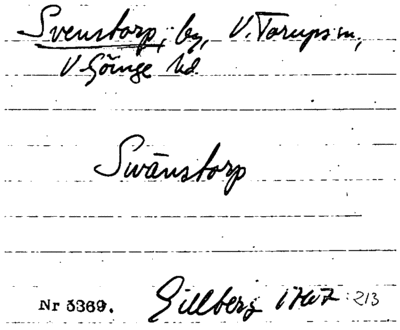 Svenstorp, by, V. Torups sn,
V. Göinge hd.
Swänstorp
Nr 5369. Gillberg 1767 : 213